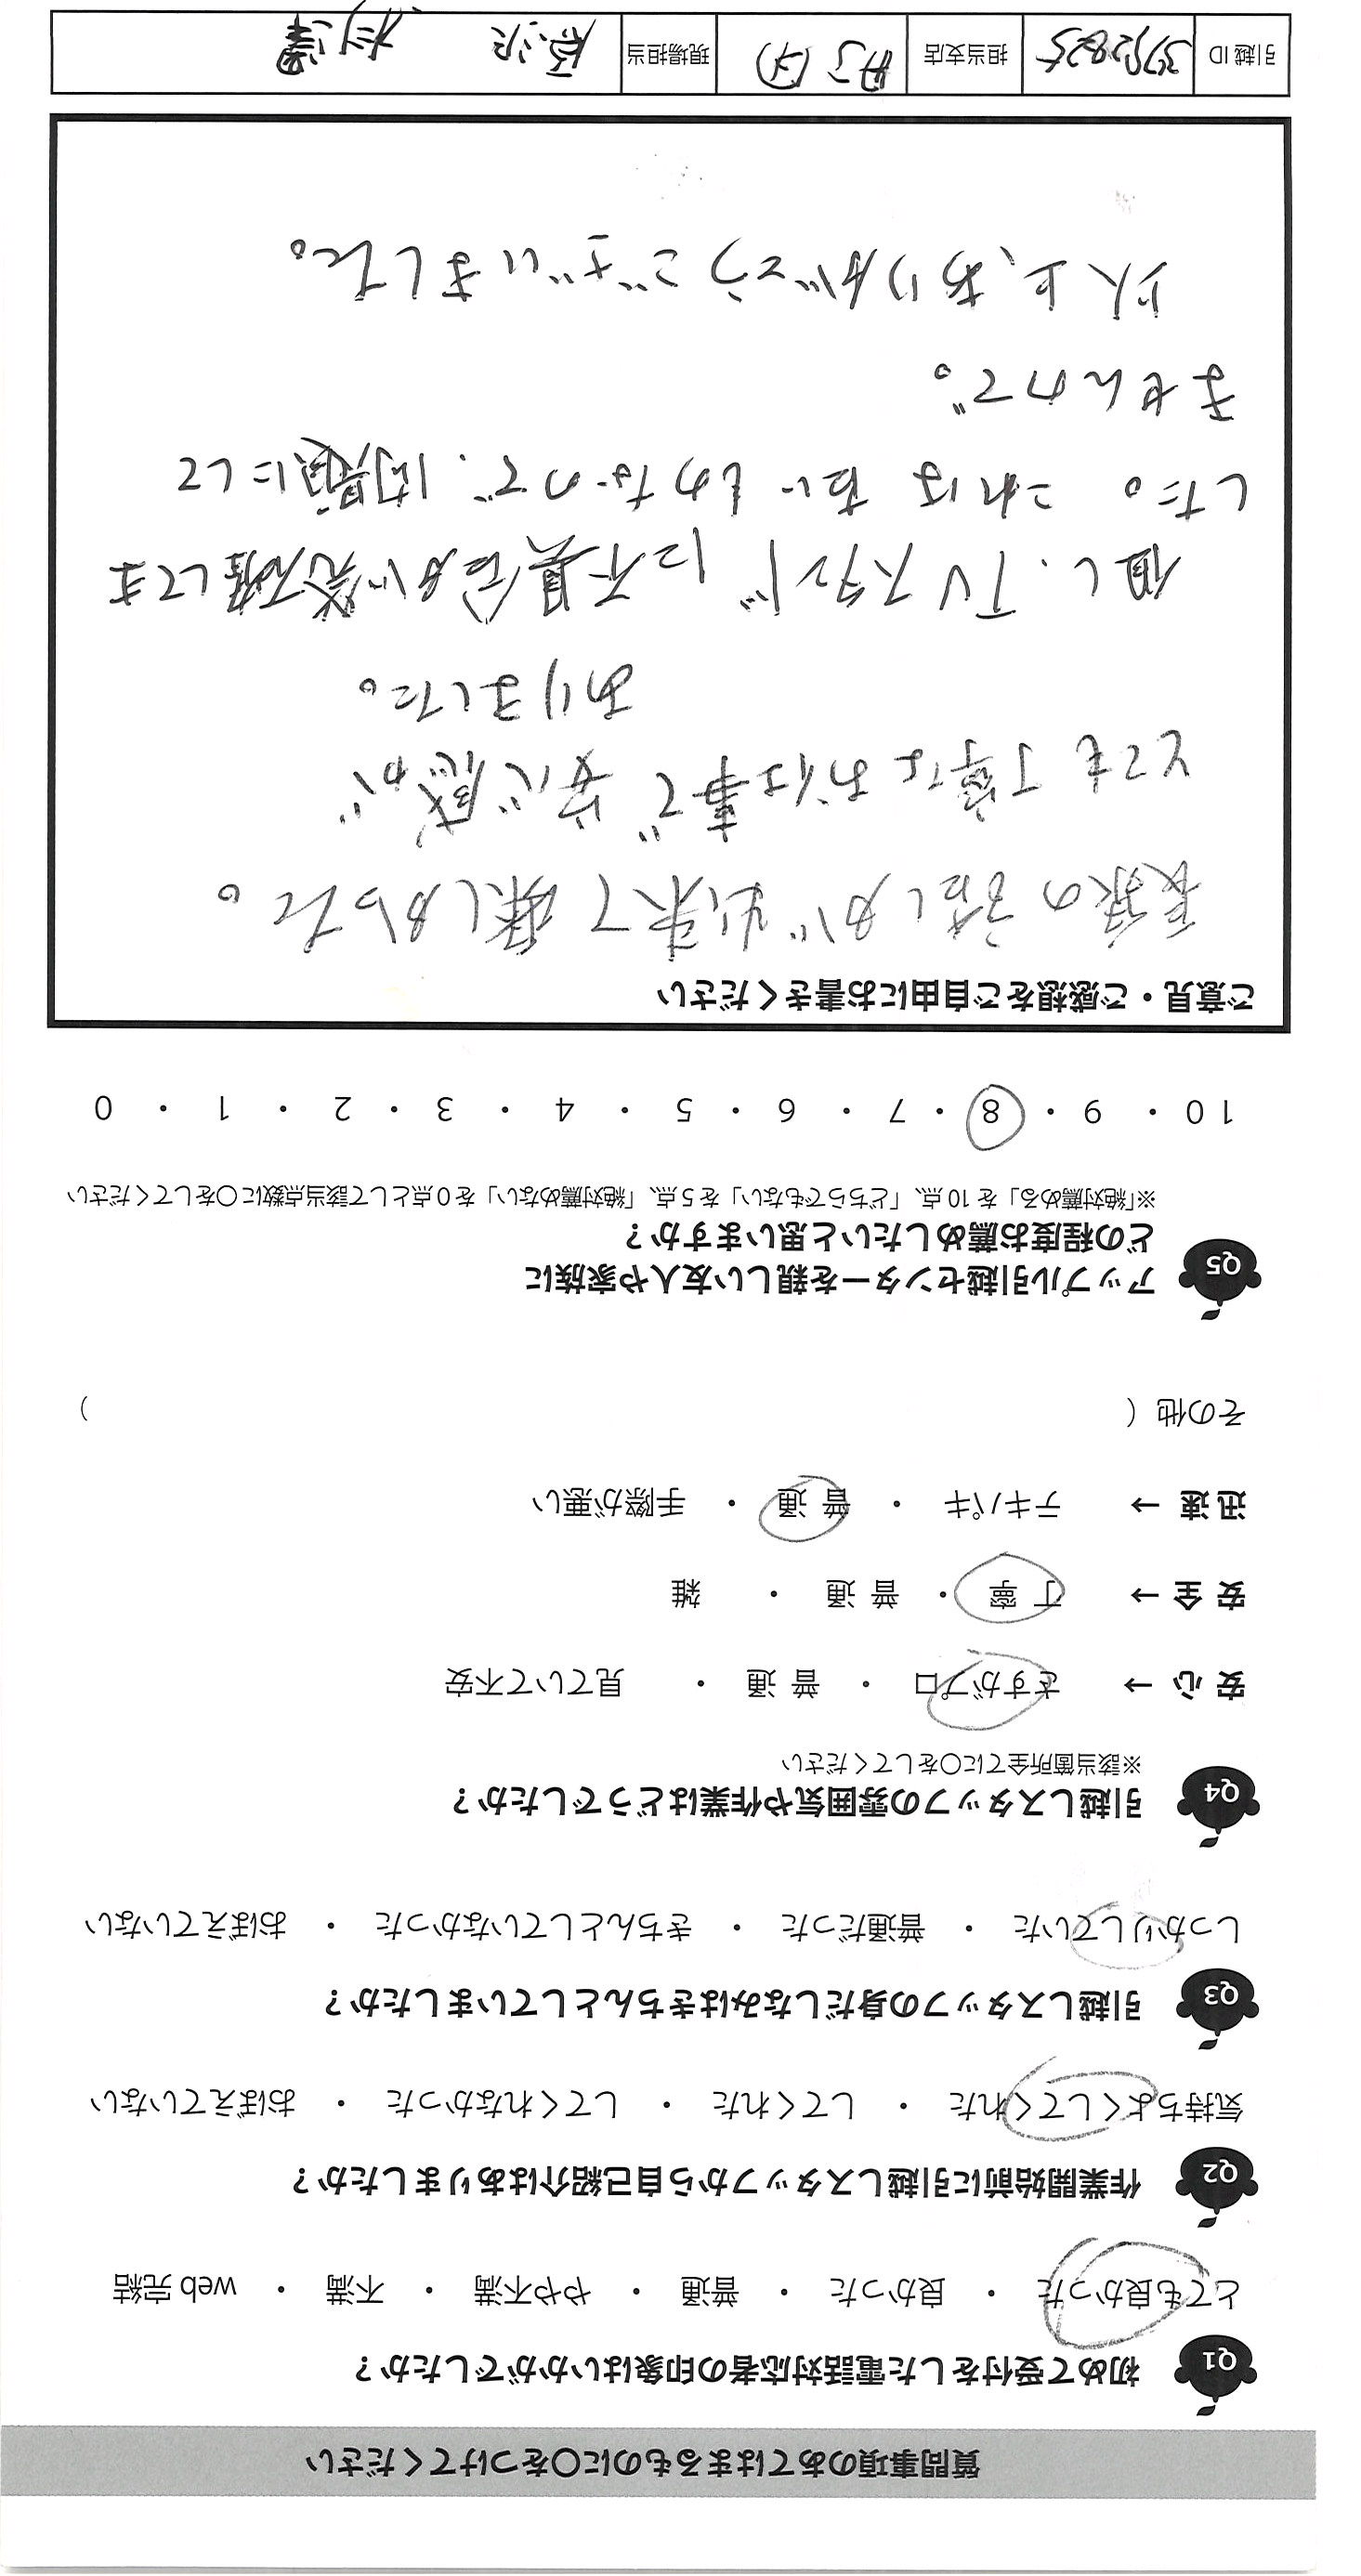 質問事項のあてはまるものに〇をつけてください
Q1 初めて受付をした電話対応者の印象はいかがでしたか？
とても良かった ・ 良かった ・ 普通 ・ やや不満 ・ 不満 ・ web 完結
Q2 作業開始前に引越しスタッフから自己紹介はありましたか？
気持ちよくしてくれた ・ してくれた ・ してくれなかった ・ おぼえていない
Q3 引越しスタッフの身だしなみはきちんとしていましたか？
しっかりしていた ・ 普通だった ・ きちんとしていなかった ・ おぼえていない
Q4 引越しスタッフの雰囲気や作業はどうでしたか？
※該当箇所全てに〇をしてください
安心 → さすがプロ ・ 普通 ・ 見ていて不安
安全 → 丁寧 ・ 普通 ・ 雑
迅速 → テキパキ ・ 普通 ・ 手際が悪い
その他（ ）
Q5 アップル引越センターを親しい友人や家族に
どの程度お薦めしたいと思いますか？
※「絶対薦める」を 10 点、「どちらでもない」を 5 点、「絶対薦めない」を 0 点として該当点数に〇をしてください
10 ・ 9 ・ 8 ・ 7 ・ 6 ・ 5 ・ 4 ・ 3 ・ 2 ・ 1 ・ 0
ご意見・ご感想をご自由にお書きください
の話しが出来て楽しかった。
とても丁寧なお仕事で安心感が
ありました。
但し、TVスタンドに不具合が発生してま
した。これは古いものなので、問題にして
ませんので。
以上、ありがとうございました。
引越 ID 担当支店 現場担当